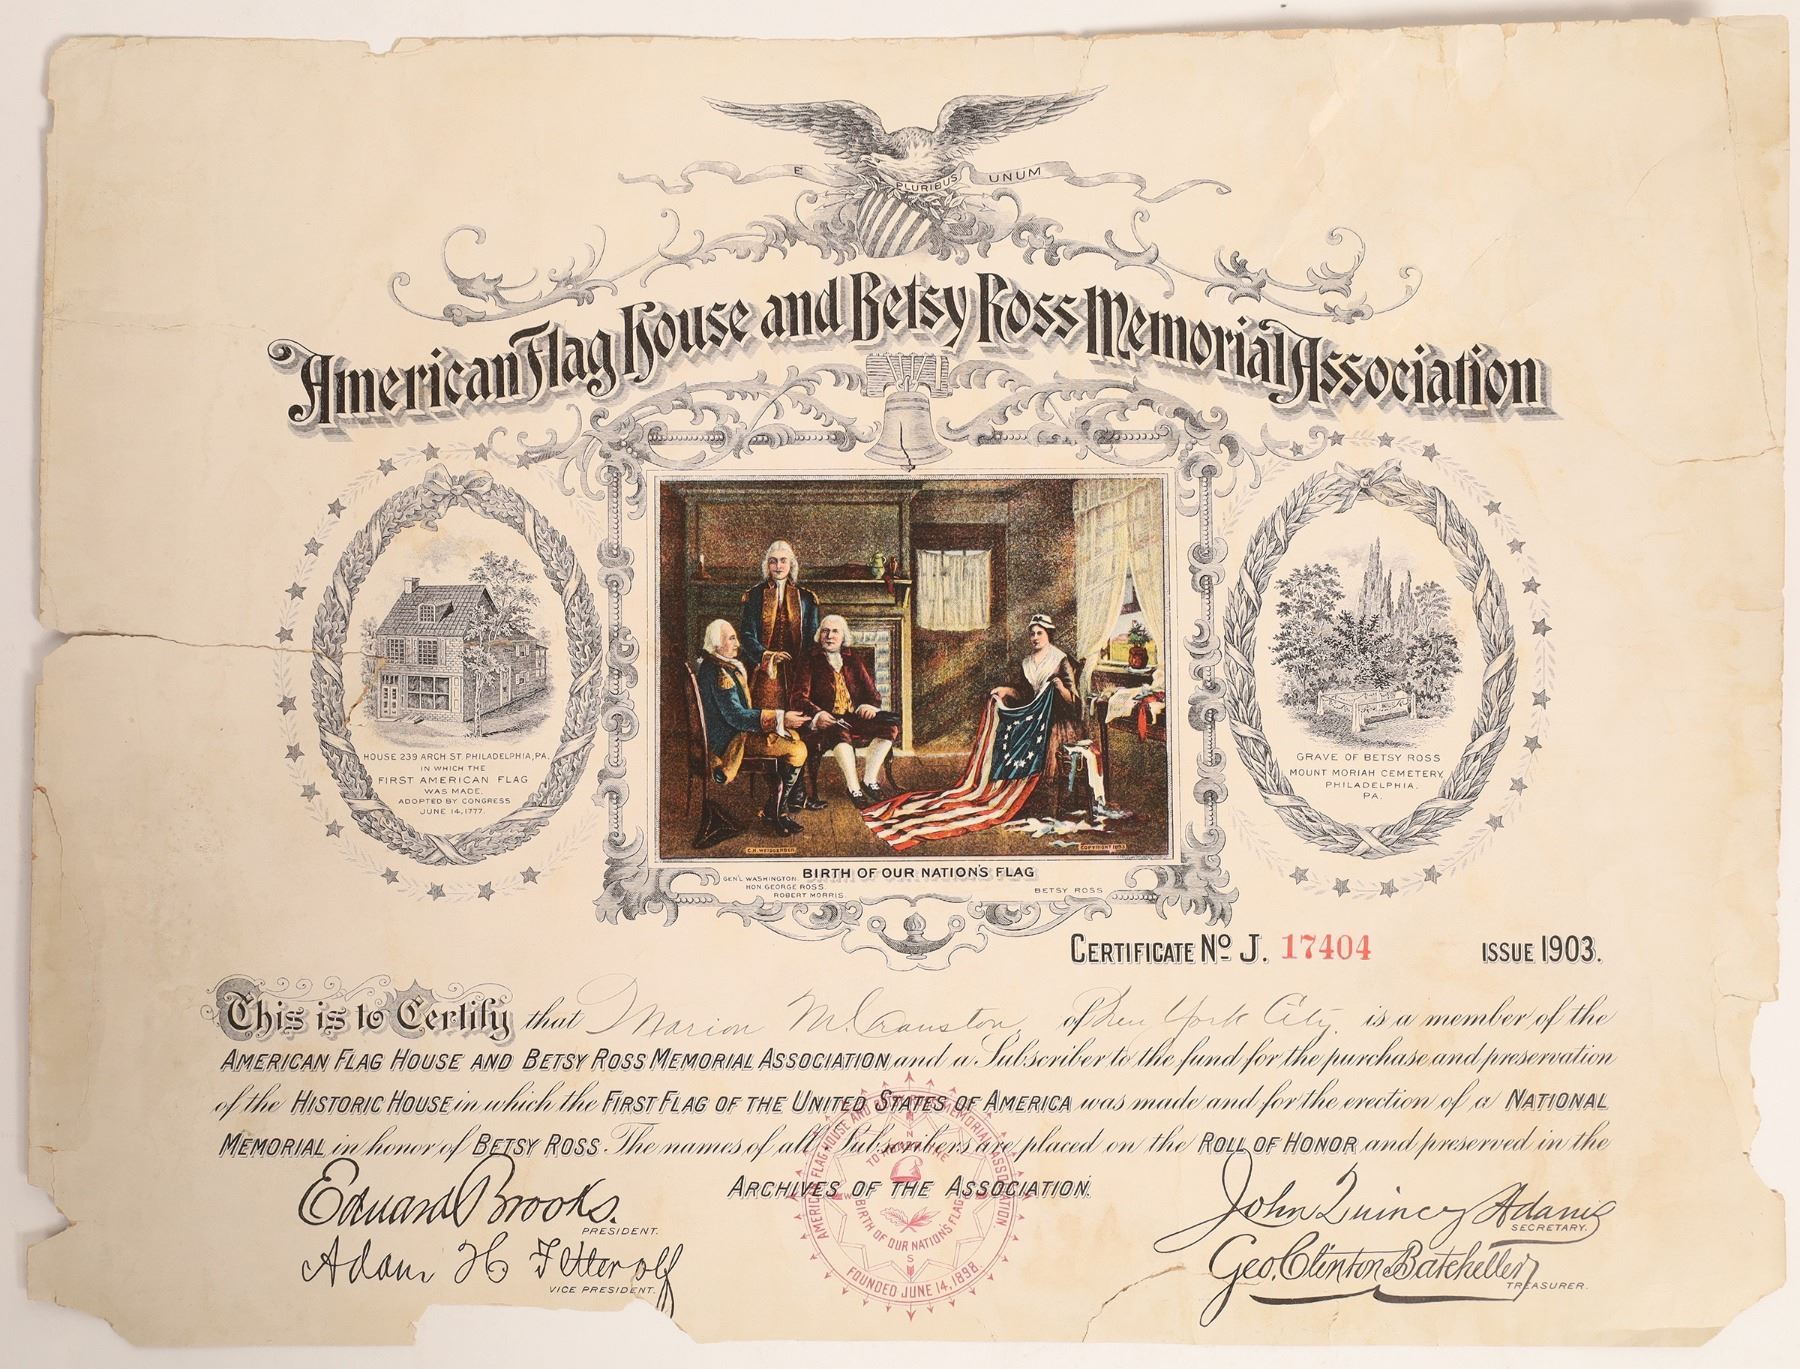 E PLURIBUS UNUM
American Flag House and Betsy Ross Memorial Association
HOUSE 239 ARCH ST. PHILADELPHIA, PA.
IN WHICH THE
FIRST AMERICAN FLAG
WAS MADE.
ADOPTED BY CONGRESS
JUNE 14, 1777.
C.H. WEISGERBER
COPYRIGHT 1903
GRAVE OF BETSY ROSS
MOUNT MORIAH CEMETERY,
PHILADELPHIA,
PA.
BIRTH OF OUR NATION'S FLAG
GEN'L WASHINGTON
HON. GEORGE ROSS
ROBERT MORRIS
BETSY ROSS
CERTIFICATE No J. 17404 ISSUE 1903.
This is to Certify that Marion McCranston, of New York City, is a member of the
AMERICAN FLAG HOUSE AND BETSY ROSS MEMORIAL ASSOCIATION and a Subscriber to the fund for the purchase and preservation
of the HISTORIC HOUSE in which the FIRST FLAG OF THE UNITED STATES OF AMERICA was made and for the erection of a NATIONAL
MEMORIAL in honor of BETSY ROSS. The names of all Subscribers are placed on the ROLL OF HONOR and preserved in the
ARCHIVES OF THE ASSOCIATION.
Edward Brooks.
PRESIDENT.
Adam H Fetterolf
VICE PRESIDENT.
John Quincy Adams
SECRETARY.
Geo. Clinton Batcheller
TREASURER.
AMERICAN FLAG HOUSE AND BETSY ROSS MEMORIAL ASSOCIATION
N
W
S
BIRTH OF OUR NATION'S FLAG
FOUNDED JUNE 14, 1898